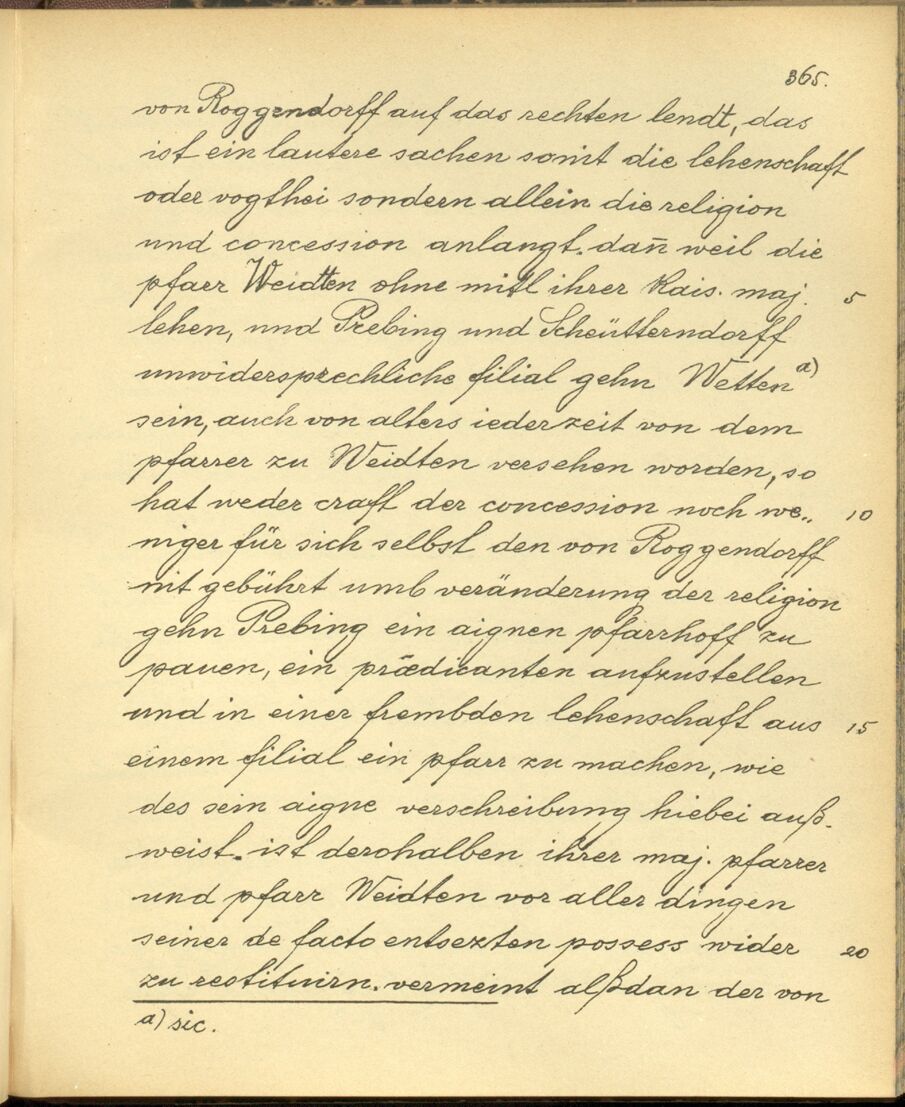 365.
von Roggendorff auf das rechten lendt, das
ist ein lautere sachen somit die lehenschaft
oder vogthei sondern allein die religion
und concession anlangt. dan̄ weil die
pfarr Weidten ohne mitl ihrer Kais. maj. 5
lehen, und Prebing und Scheütterndorff
unwidersprechliche filial gehn Wetten a)
sein, auch von alters iederzeit von dem
pfarrer zu Weidten versehen worden, so
hat weder craft der concession noch we„ 10
niger für sich selbst den von Roggendorff
nit gebührt umb veränderung der religion
gehn Prebing ein aignen pfarrhoff zu
pauen, ein prædicanten aufzustellen
und in einer frembden lehenschaft aus 15
einem filial ein pfarr zu machen, wie
des sein aigne verschreibung hiebei auß-
weist. ist derohalben ihrer maj. pfarrer
und pfarr Weidten vor aller dingen
seiner de facto entsezten possess wider 20
zu restituirn. vermeint alßdan der von
a) sic.